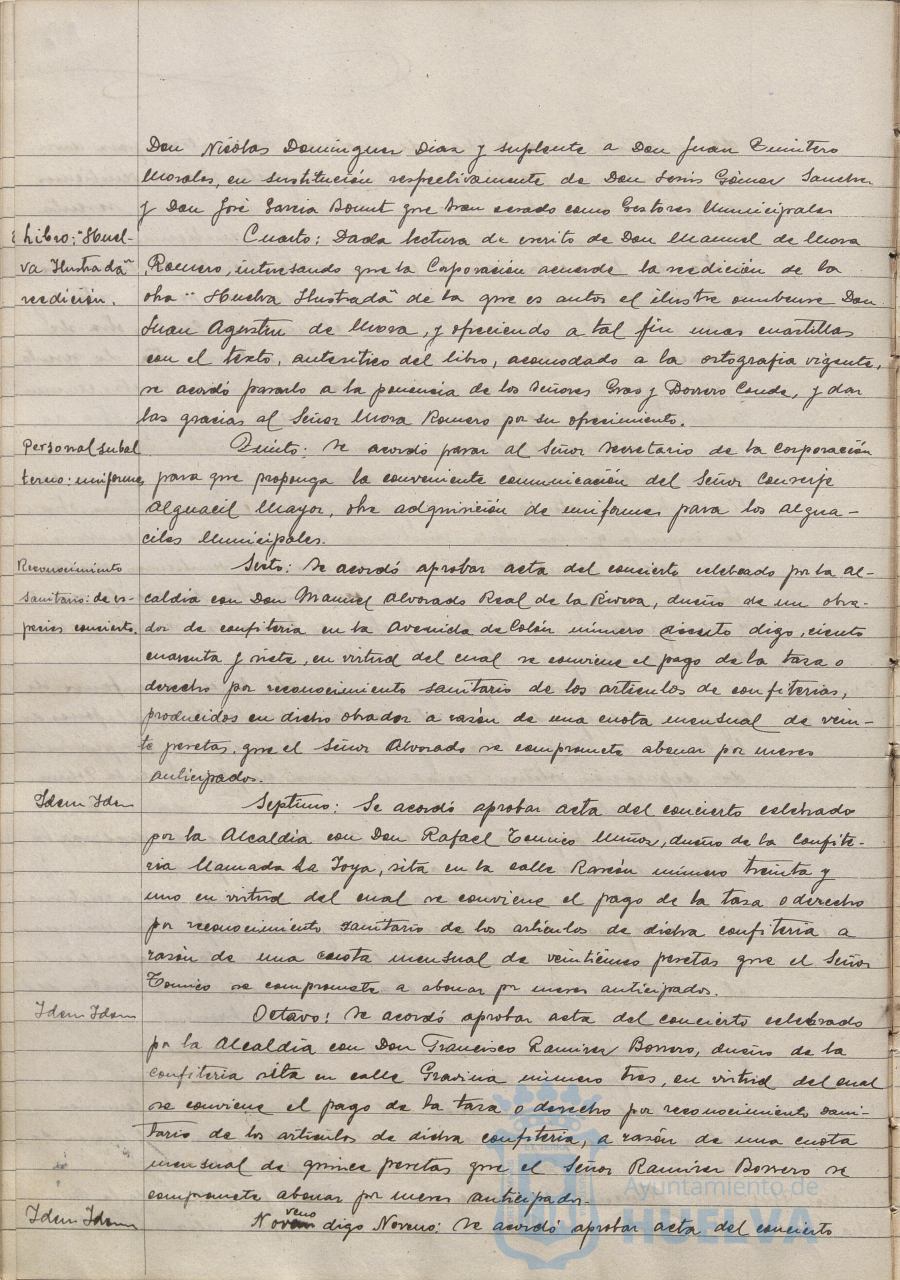 Don Nicolas Dominguez Diaz y suplente a Don Juan Quintero
Morales, en sustitución respectivamente de Don Luis Gómez Sanchez
y Don José Garcia Bonut que han cesado como Gestores Municipales
Libro: "Huel-
va Ilustrada"
reedición.
Cuarto: Dada lectura de escrito de Don Manuel de Mora
Romero, interesando que la Corporación acuerde la reedición de la
obra "Huelva Ilustrada" de la que es autor el ilustre onubense Don
Juan Agustin de Mora, y ofreciendo a tal fin unas cuartillas
con el texto, autentico del libro, acomodado a la ortografia vigente,
se acordó pasarlo a la ponencia de los Señores Gras y Borrero Conde, y dar
las gracias al Señor Mora Romero por su ofrecimiento.
Personal subal
terno: uniformes
Quinto: Se acordó pasar al Señor Secretario de la Corporación
para que proponga lo conveniente comunicación del Señor Conserje
Alguacil Mayor, sobre adquisición de uniformes para los Algua-
ciles Municipales.
Reconocimiento
sanitario: de es-
pecies concierto.
Sexto: Se acordó aprobar acta del concierto celebrado por la Al-
caldia con Don Manuel Alvarado Real de la Riveva, dueño de un obra-
dor de confiteria en la Avenida de Colón número ciento digo, ciento
cuarenta y siete, en virtud del cual se conviene el pago de la tasa o
derecho por reconocimiento sanitario de los articulos de confiterias,
producidos en dicho obrador a razón de una cuota mensual de vein-
te pesetas, que el Señor Alvarado se compromete abonar por meses
anticipados.
Idem Idem
Septimo: Se acordó aprobar acta del concierto celebrado
por la Alcaldía con Don Rafael Muñoz, dueño de la confite-
ria llamada La Joya, sita en la calle Rascón número treinta y
uno en virtud del cual se conviene el pago de la tasa o derecho
por reconocimiento sanitario de los artículos de dicha confiteria a
razón de una cuota mensual de veinticinco pesetas que el Señor
se compromete a abonar por meses anticipados.
Idem Idem
Octavo: Se acordó aprobar acta del concierto celebrado
por la Alcaldia con Don Francisco Ramirez Borrero, dueño de la
confiteria sita en calle Gravina número tres, en virtud del cual
se conviene el pago de la tasa o derecho por reconocimiento sani-
tario de los articulos de dicha confiteria, a razón de una cuota
mensual de quince pesetas que el Señor Ramirez Borrero se
compromete abonar por meses anticipados.
Idem Idem
Noveno digo Noveno: Se acordó aprobar acta del concierto
Ayuntamiento de
HUELVA